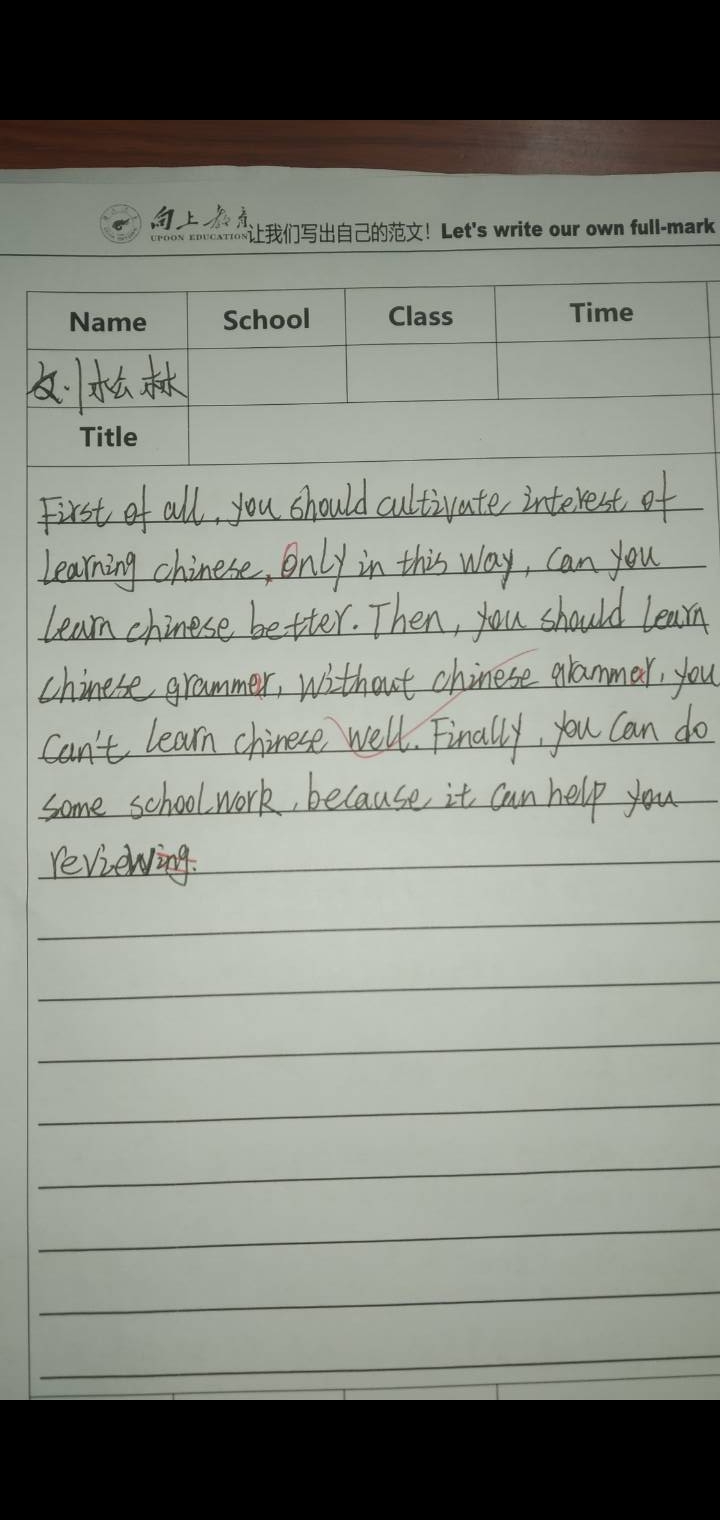 向上教育
UPOON EDUCATION
让我们写出自己的范文! Let's write our own full-mark
Name School Class Time
刘松林
Title
First of all, you should cultivate interest of
learning chinese. Only in this way, can you
learn chinese better. Then, you should learn
chinese grammer, without chinese grammar, you
can't learn chinese well. Finally, you can do
some schoolwork, because it can help you
reviewing.